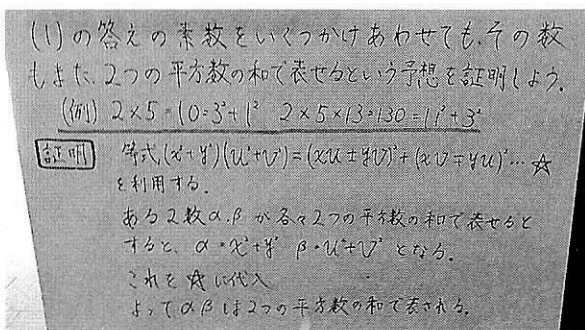 (1)の答えの素数をいくつかけあわせても、その数
もまた、2つの平方数の和で表せるという予想を証明しよう。
(例) 2×5=10=3²+1² 2×5×13=130=11²+3²
証明 等式(x²+y²)(u²+v²)=(xu±yv)²+(xv∓yu)²…☆
を利用する。
ある2数α.βが各々2つの平方数の和で表せると
すると、α=x²+y² β=u²+v² となる。
これを☆に代入
よってαβは2つの平方数の和で表される。